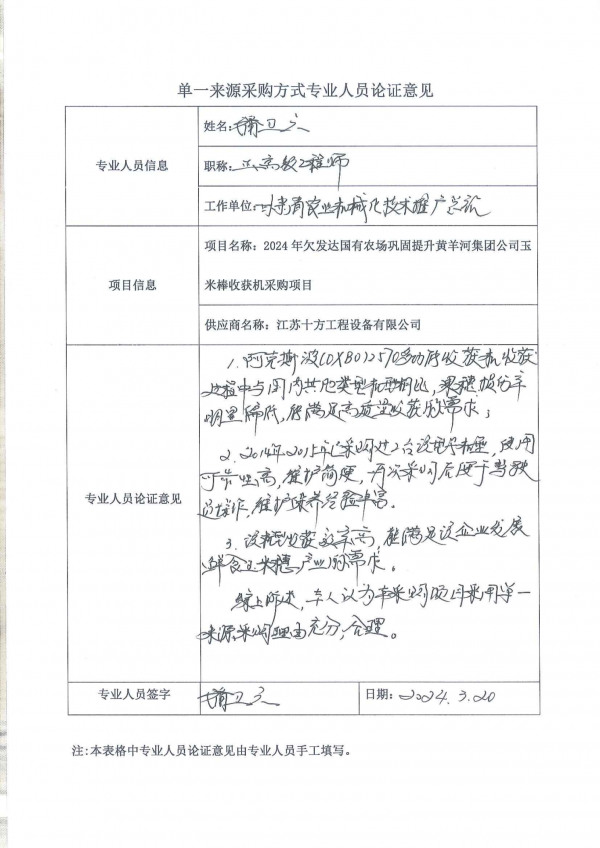 单一来源采购方式专业人员论证意见
专业人员信息
姓名：
职称：正高级工程师
工作单位：甘肃省农业机械化技术推广总站
项目信息
项目名称：2024年欠发达国有农场巩固提升黄羊河集团公司玉
米棒收获机采购项目
供应商名称：江苏十方工程设备有限公司
专业人员论证意见
1. 阿克斯波(OXBO)2570多功能收获机收获
过程中与国内其他类型机型相比，果穗损伤率
明显偏低，能满足高质量收获的需求；
2. 2014年2015年已采购过2台该型号机型，使用
可靠性高，维护简便，再次采购后便于驾驶
员操作，维护保养经验丰富。
3. 该机型收获效率高，能满足该企业发展
鲜食玉米穗产业的需求。
综上所述，本人认为本采购项目采用单一
来源采购理由充分，合理。
专业人员签字
日期：2024.3.20
注：本表格中专业人员论证意见由专业人员手工填写。